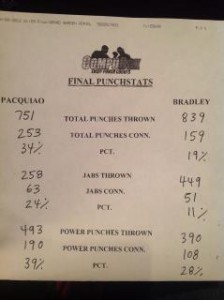 COMPUBOX
FINAL PUNCHSTATS
PACQUIAO BRADLEY
751 TOTAL PUNCHES THROWN 839
253 TOTAL PUNCHES CONN. 159
34% PCT. 19%
258 JABS THROWN 449
63 JABS CONN. 51
24% PCT. 11%
493 POWER PUNCHES THROWN 390
190 POWER PUNCHES CONN. 108
39% PCT. 28%